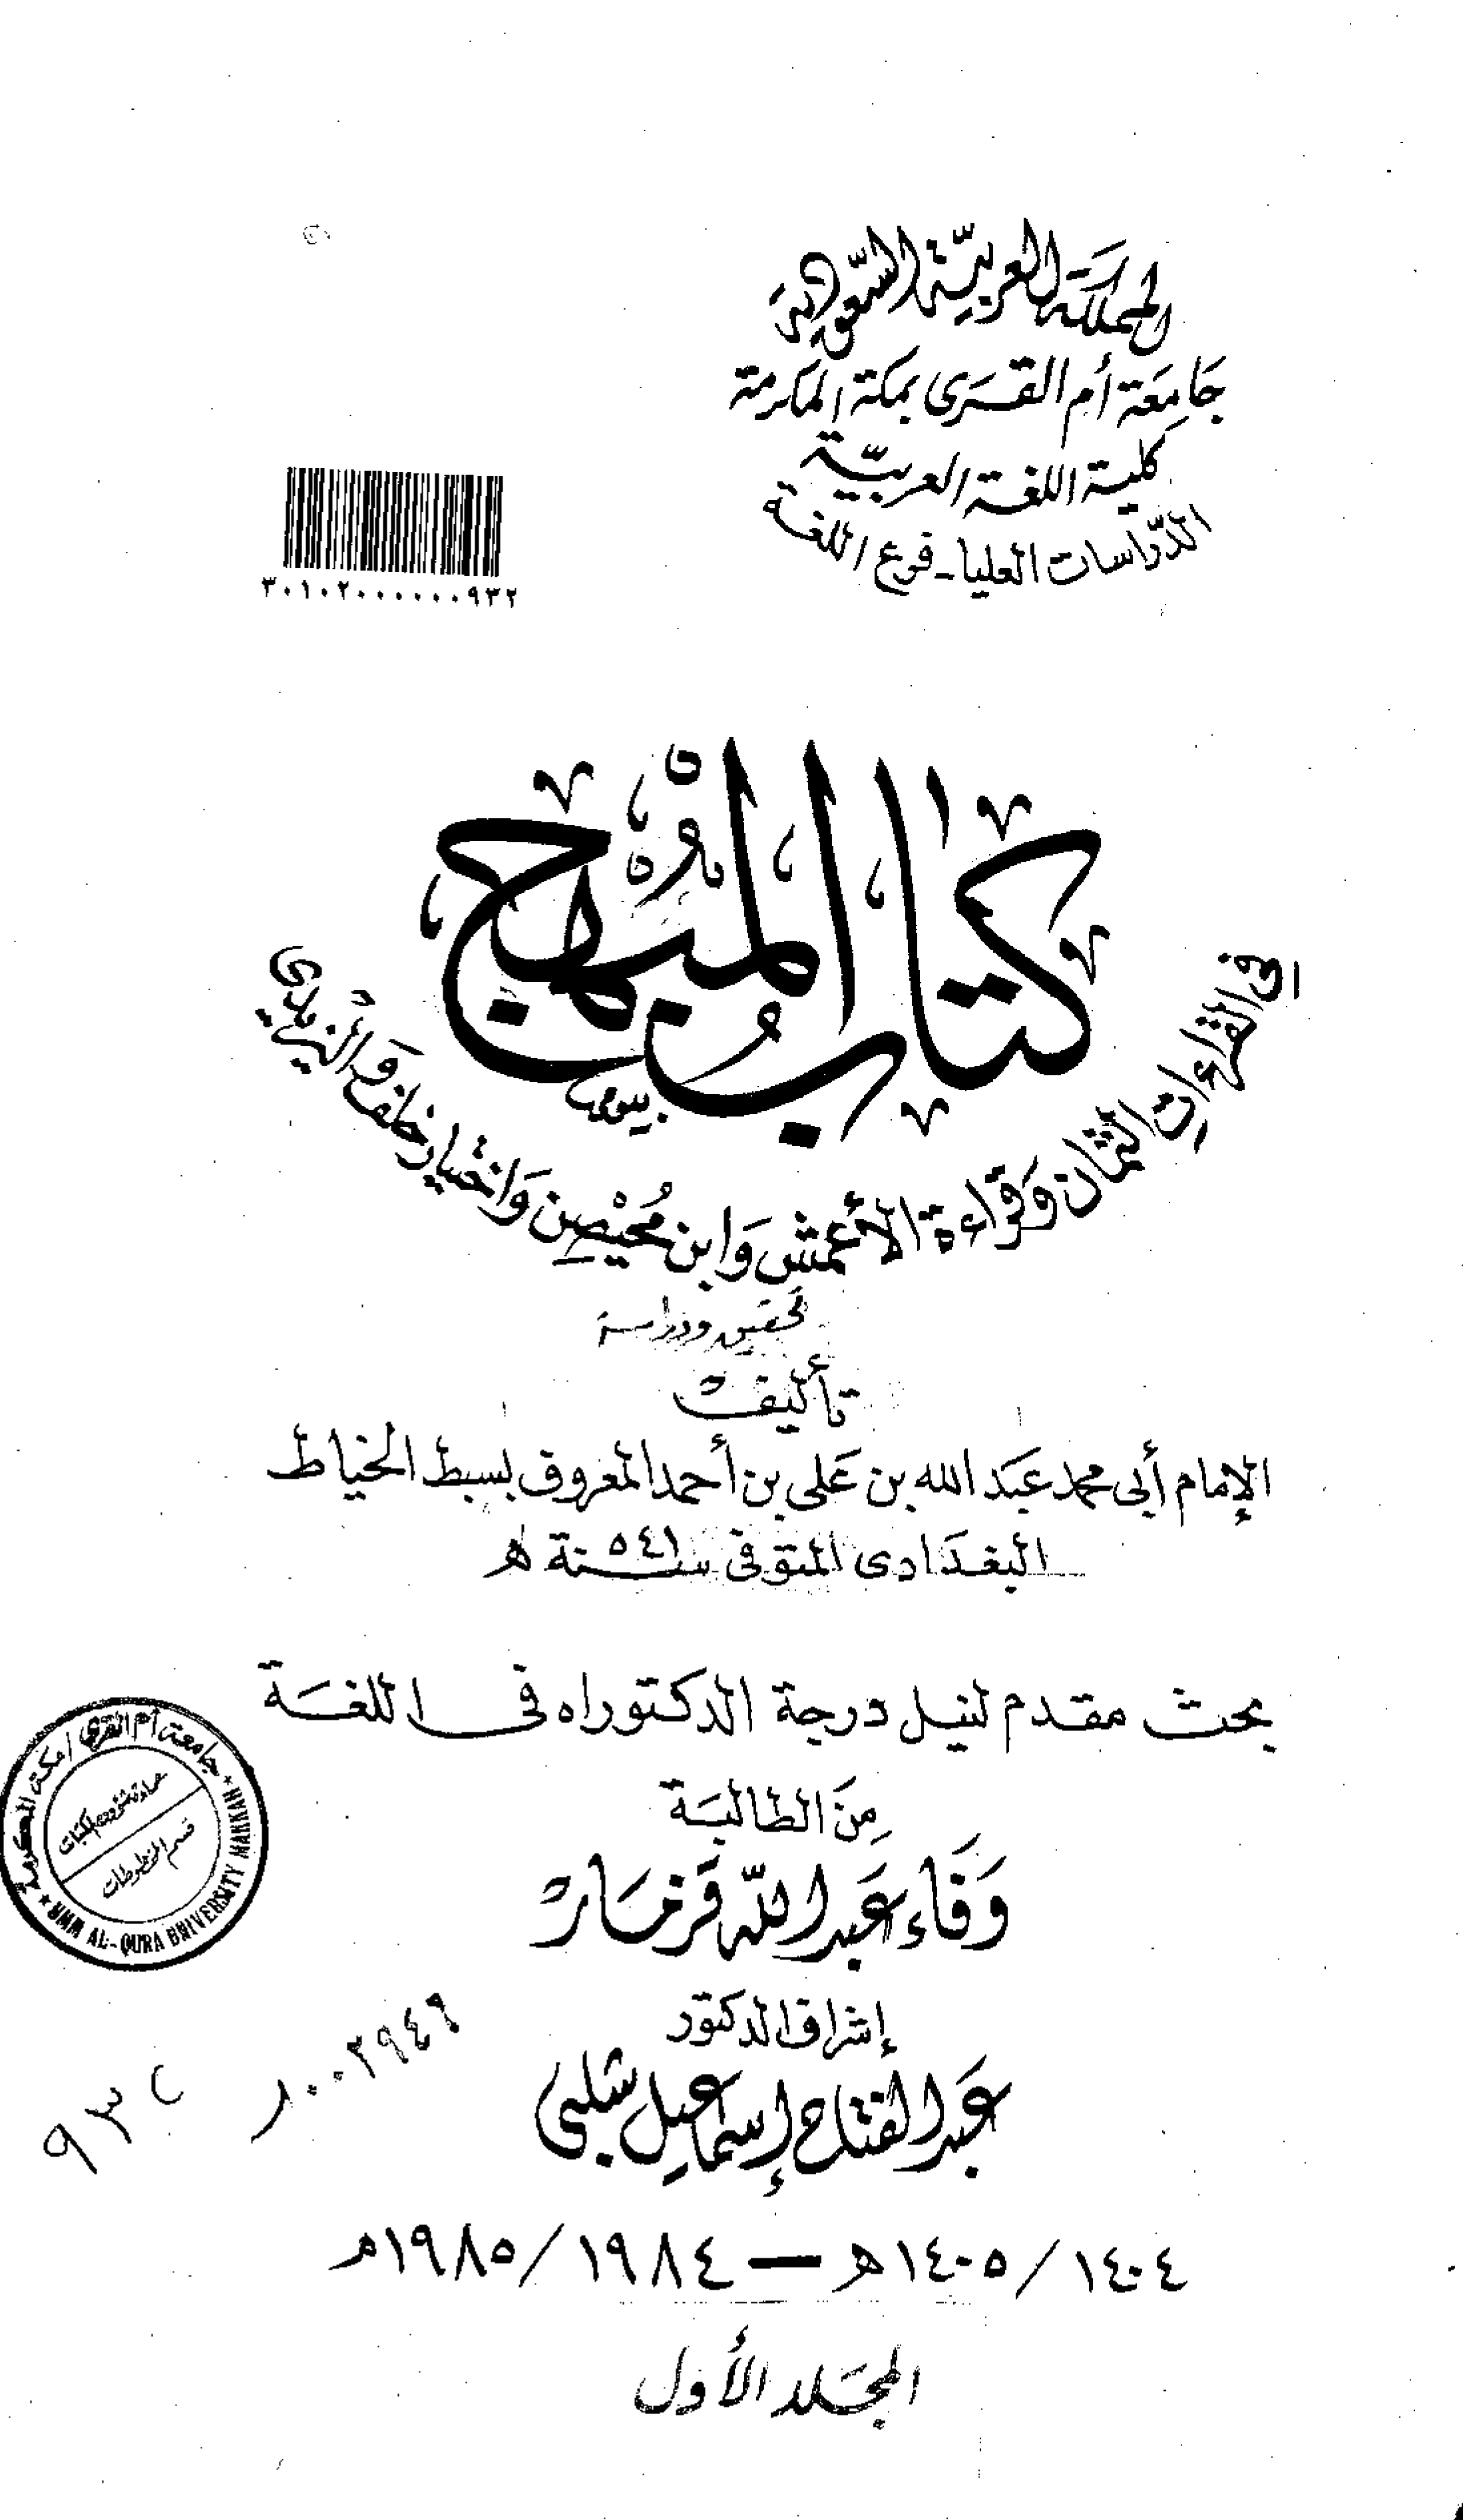 المملكة العربيّة السّعودية
جَامِعَة أم القسرَى بمكة المكرمة
كلية اللغة العربيّة
الدّراسات العليا - فرع اللغة
٣٠١٠٢٠٠٠٠٠٠٩٣٢
كتاب المبهج
في القراءات الثمان وقراءة الأعمش وَابن مُحَيْصِن وَاختيار خلف وَاليزيدي
تحقيق ودراسة
تأليف
الإمام أبى محمد عبَد الله بن عَلى بن أحمد المعروف بسبط الخياط
البغدَادى المتوفى سنة ٥٤١ ه
بحث مقدم لنيل درجة الدكتوراه فى اللغة
مِنَ الطالبَة
وَفَاء عَبد اللّه قزمَار
إشراف الدكتور
عَبد الفتاح إسماعيل شلبى
١٤٠٤ / ١٤٠٥ ه — ١٩٨٤ / ١٩٨٥م
المجَلد الأول
جامعة أم القرى / مكة المكرمة
عمادة شؤون المكتبات
قسم المخطوطات
UMM AL-QURA UNIVERSITY MAKKAH
٠٠٢٩٤٩
٩٣٢